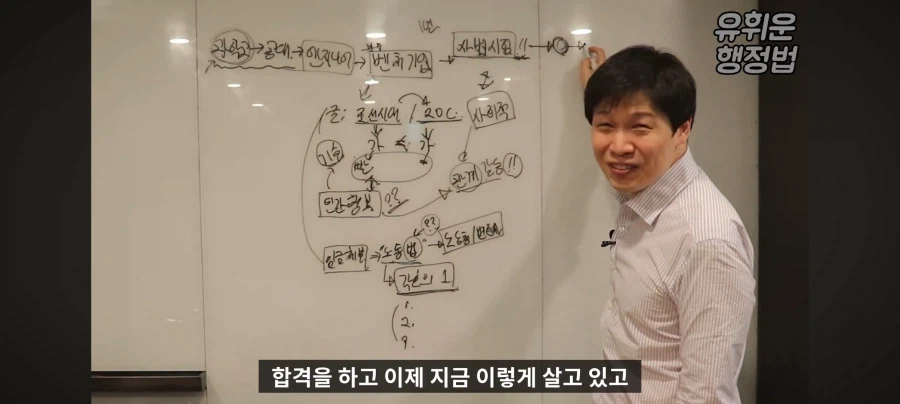 유휘운
행정법
과학고 → 공대 → 엔지니어 → 벤처기업 → 사법시험!! →
글: 조선시대 / 20C.
사회적
기술
인간 행복 ??
관계 갈등!!
임금체불 → "노동법" →
각인의 1
1.
2.
합격을 하고 이제 지금 이렇게 살고 있고